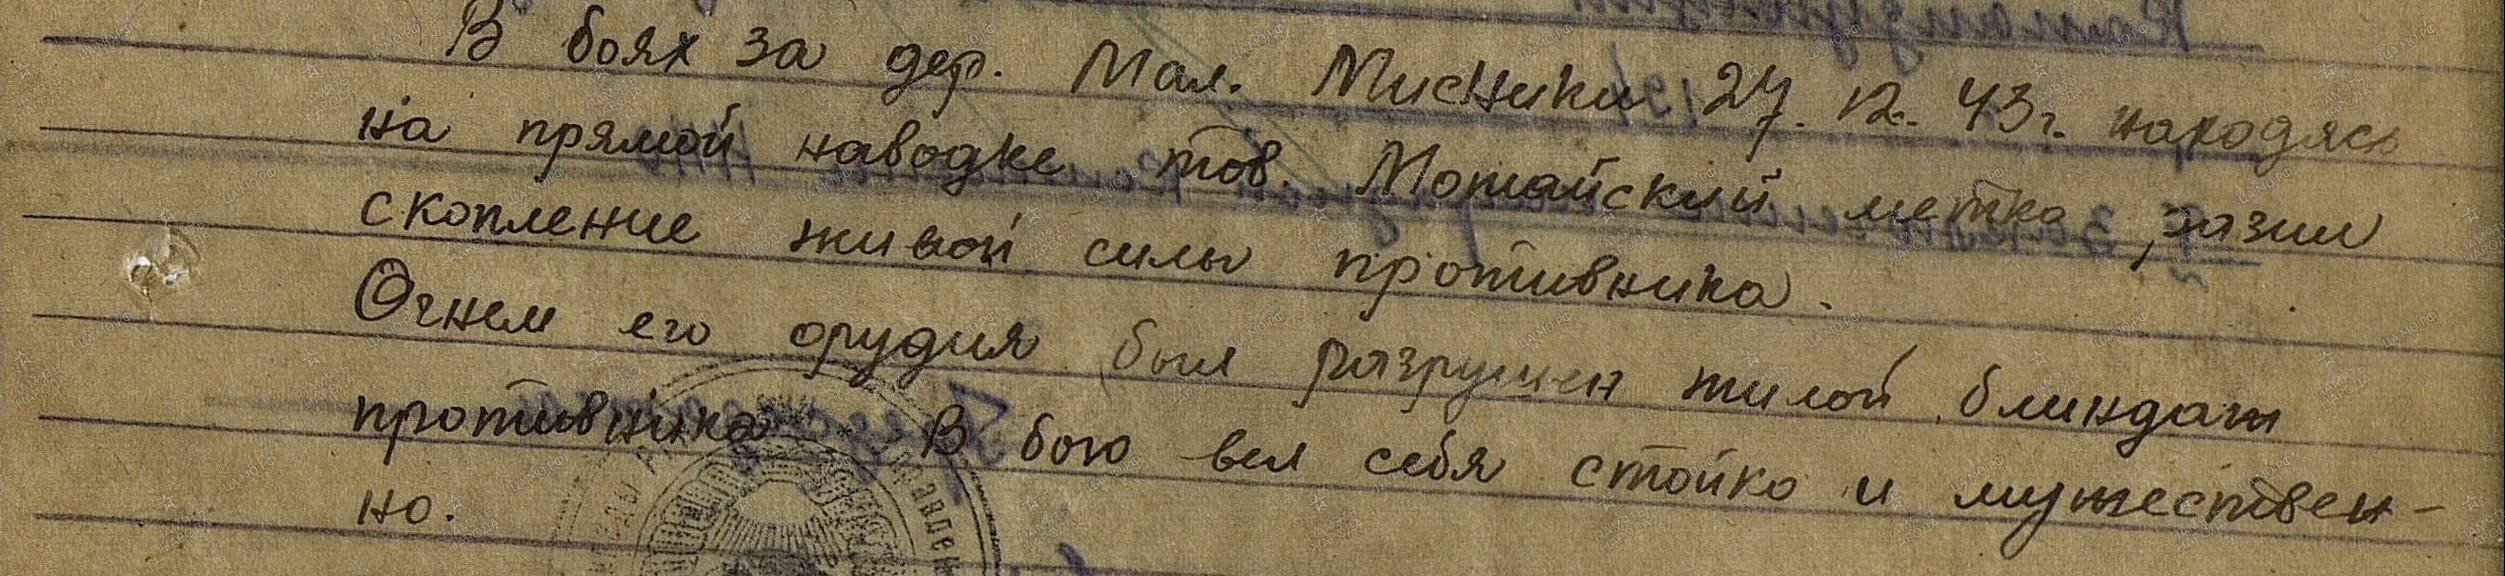 В боях за дер. Мал. Мисники 27. 12. 43 г. находясь
на прямой наводке тов. Мотайский метко разил
скопление живой силы противника.
Огнем его орудия был разрушен жилой блиндаж
противника. В бою вел себя стойко и мужествен-
но.